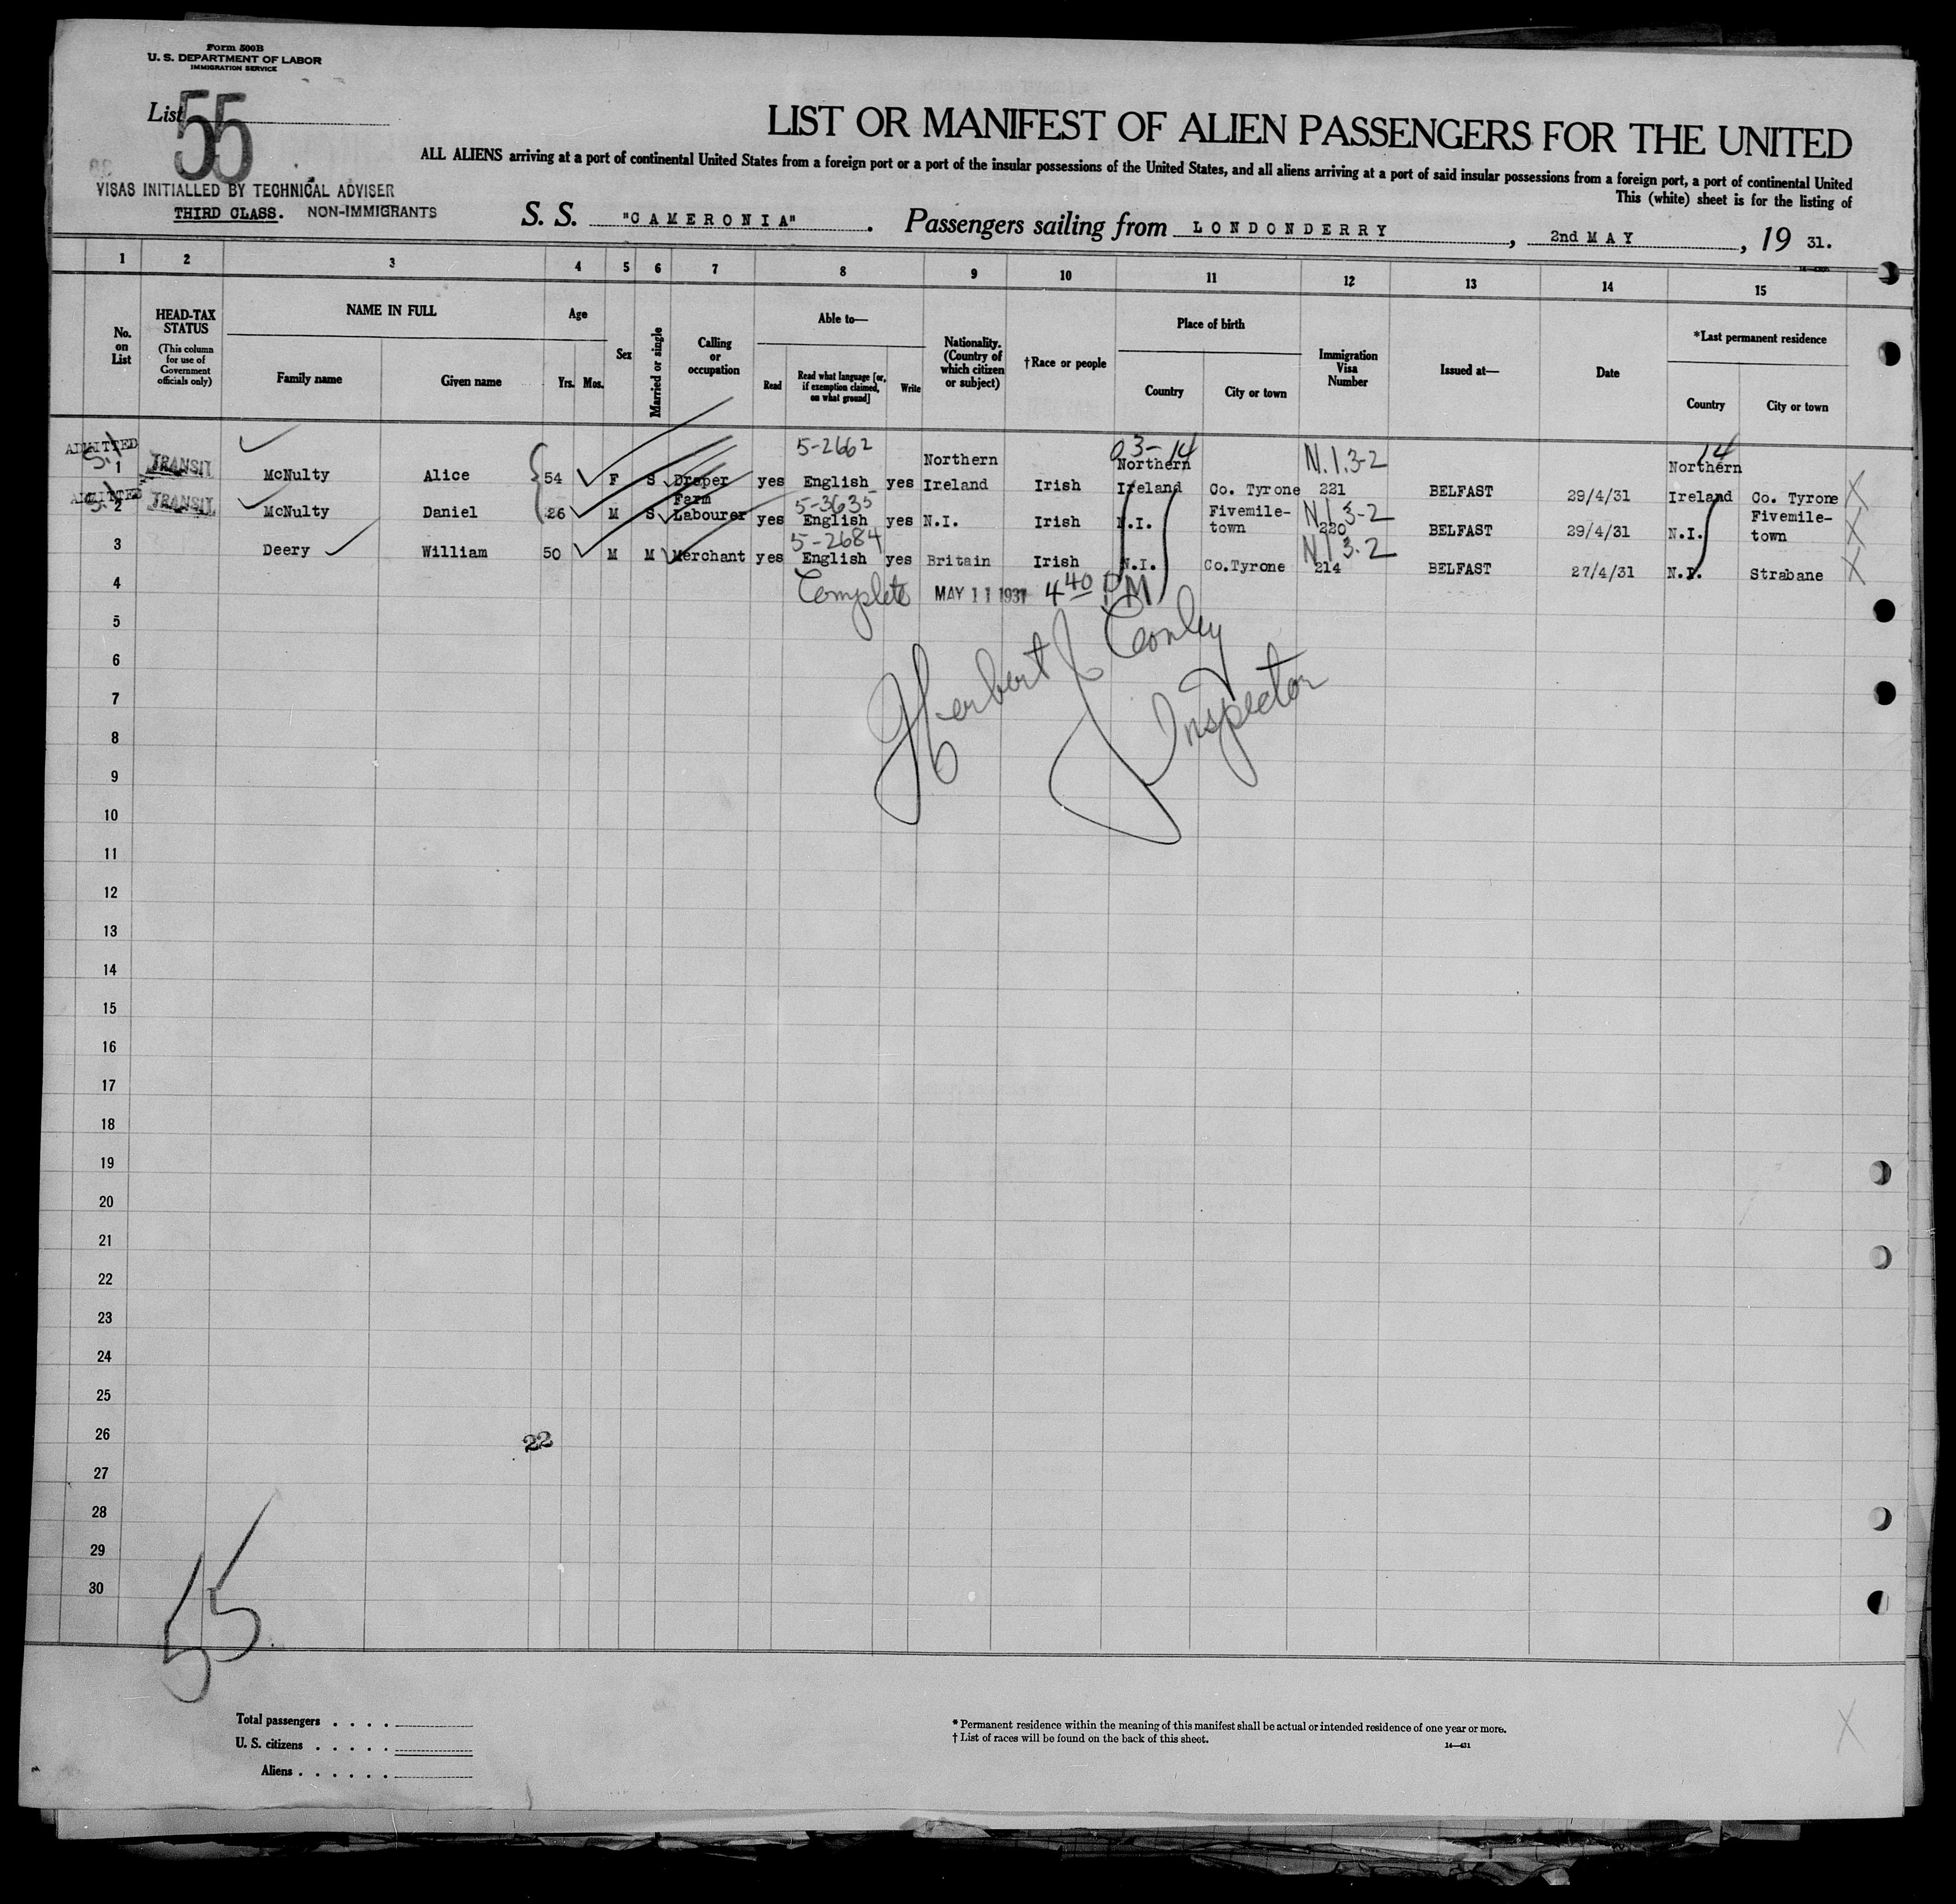 Form 500B
U. S. DEPARTMENT OF LABOR
IMMIGRATION SERVICE
List 55
LIST OR MANIFEST OF ALIEN PASSENGERS FOR THE UNITED
ALL ALIENS arriving at a port of continental United States from a foreign port or a port of the insular possessions of the United States, and all aliens arriving at a port of said insular possessions from a foreign port, a port of continental United
This (white) sheet is for the listing of
VISAS INITIALLED BY TECHNICAL ADVISER
THIRD CLASS. NON-IMMIGRANTS
S. S. "CAMERONIA". Passengers sailing from LONDONDERRY, 2nd MAY, 19 31.
1 2 3 4 5 6 7 8 9 10 11 12 13 14 15
No. on List
HEAD-TAX STATUS
(This column for use of Government officials only)
NAME IN FULL
Family name
Given name
Age
Yrs. Mos.
Sex
Married or single
Calling or occupation
Able to—
Read
Read what language [or, if exemption claimed, on what ground]
Write
Nationality. (Country of which citizen or subject)
†Race or people
Place of birth
Country
City or town
Immigration Visa Number
Issued at—
Date
*Last permanent residence
Country
City or town
5-2662 03-14 N.I.3-2 14
ADMITTED 1 TRANSIT McNulty Alice 54 F S Draper yes English yes Northern Ireland Irish Northern Ireland Co. Tyrone 221 BELFAST 29/4/31 Northern Ireland Co. Tyrone
5-3635 N.I 3-2
ADMITTED 2 TRANSIT McNulty Daniel 26 M S Farm Labourer yes English yes N.I. Irish N.I. Fivemile-town 220 BELFAST 29/4/31 N.I. Fivemile-town
5-2684 N.I 3.2
3 Deery William 50 M M Merchant yes English yes Britain Irish N.I. Co.Tyrone 214 BELFAST 27/4/31 N.I. Strabane
4 Complete MAY 11 1931 4 40 PM
Herbert J Conley
Inspector
5
6
7
8
9
10
11
12
13
14
15
16
17
18
19
20
21
22
23
24
25
26
22
27
28
29
30
55
Total passengers . . . .
U. S. citizens . . . . .
Aliens . . . . . .
* Permanent residence within the meaning of this manifest shall be actual or intended residence of one year or more.
† List of races will be found on the back of this sheet.
14—431